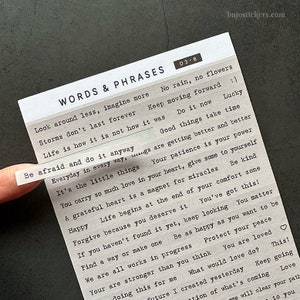 bujostickers.com
WORDS & PHRASES 03-8
Look around less, imagine more No rain, no flowers
Storms don't last forever Keep moving forward :)
Life is how it is not how it was Do it now Lucky
Good things take time
Be afraid and do it anyway
Everyday in every way, things are getting better and better
It's the little things Your patience is your power
You carry so much love in your heart, give some to yourself
A grateful heart is a magnet for miracles Be kind
Happy Life begins at the end of your comfort zone
Forgive because you deserve it You've got this!
If you haven't found it yet, keep looking You matter
Find a way or make one Be as happy as you want to be
We are all works in progress Protect your peace ♡
Your are stronger than you think You are loved
doing this for me What would love do? This!
future's created yesterday Keep going
of what's coming Love
will clear your